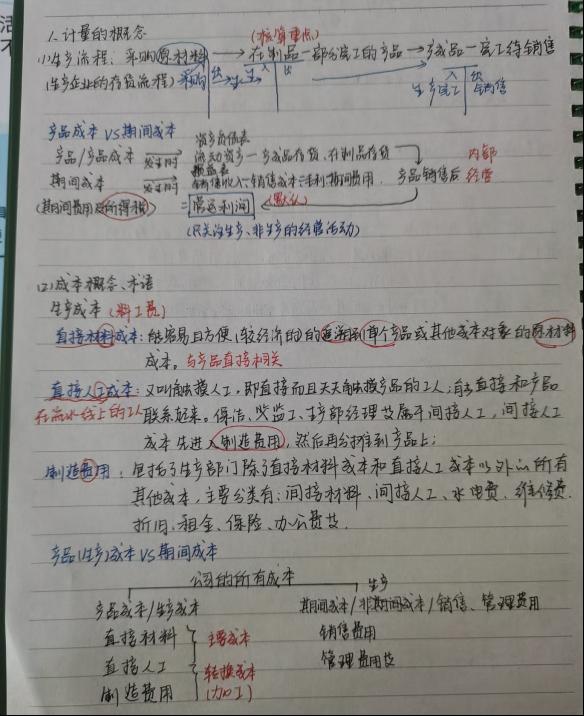 1、计量的概念
(核算重点)
(1)生产流程：采购原材料 → 在制品—部分完工的产品 → 产成品—完工待销售
(生产企业的存货流程) 采购 出 生产 入 出 生产完工 入 出 销售
产品成本 VS 期间成本
资产负债表
产品/产品成本 发生时 流动资产—产成品存货、在制品存货
损益表
内部
期间成本 发生时 销售收入-销售成本=毛利-期间费用 产品销售后 经营
(期间费用及所得税) =营运利润 (默认)
(只关注生产、非生产的经营活动)
(2)成本概念、术语
生产成本(料工费)
直接材料成本：能容易且方便(较经济的)的追溯到单个产品或其他成本对象的原材料
成本。与产品直接相关
直接人工成本：又叫触摸人工，即直接而且天天触摸产品的工人；能直接和产品
在流水线上的工人 联系起来。保洁、监工、生产部经理等属于间接人工，间接人工
成本先进入制造费用，然后再分摊到产品上；
制造费用：包括了生产部门除了直接材料成本和直接人工成本以外的所有
其他成本，主要分类有：间接材料、间接人工、水电费、维修费、
折旧、租金、保险、办公费等。
产品(生产)成本 VS 期间成本
公司的所有成本
生产
产品成本/生产成本 期间成本/非期间成本/销售、管理费用
直接材料 主要成本 销售费用
直接人工 转换成本 管理费用等
制造费用 (加工)